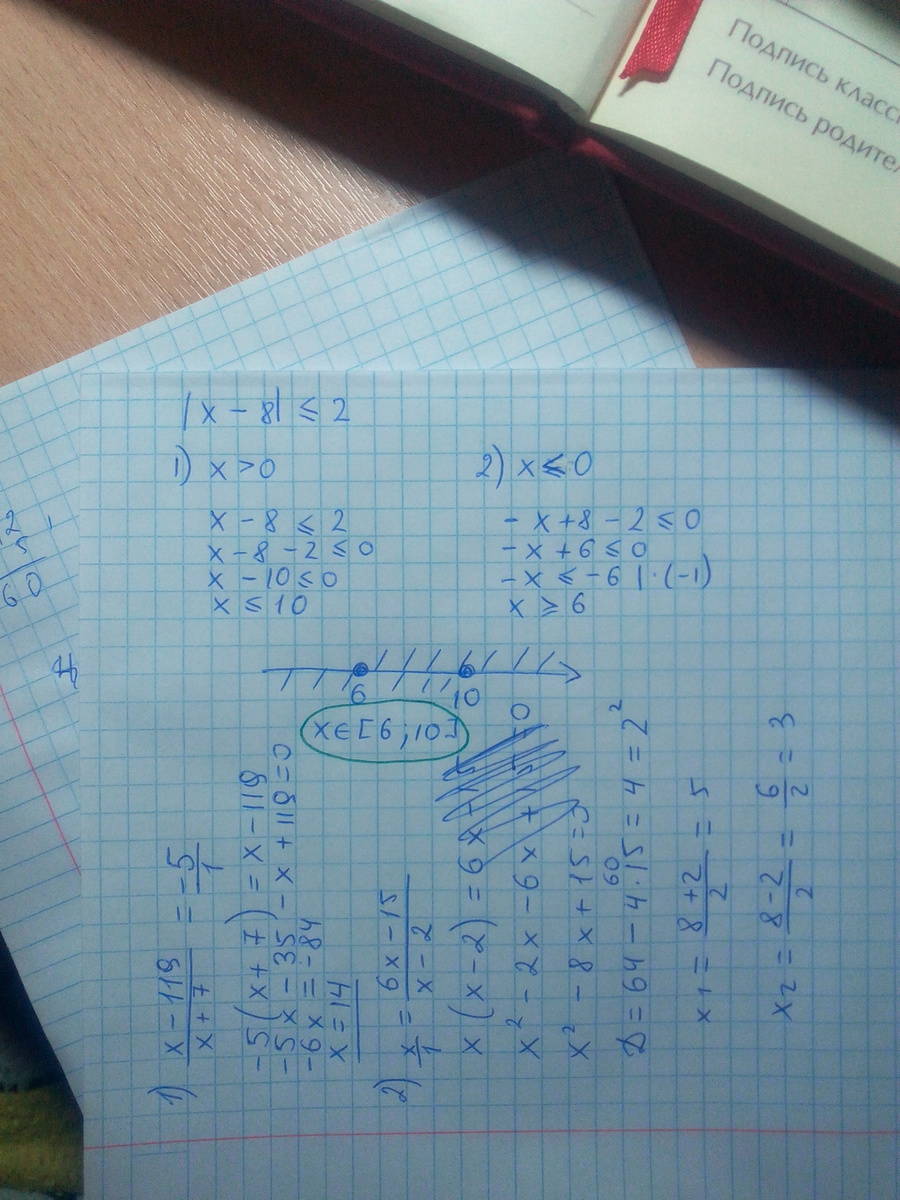 Подпись класс
Подпись родител
2
5
60
|x - 8| ≤ 2
1) x > 0
x - 8 ≤ 2
x - 8 - 2 ≤ 0
x - 10 ≤ 0
x ≤ 10
2) x ≤ 0
- x + 8 - 2 ≤ 0
- x + 6 ≤ 0
- x ≤ - 6 | · (-1)
x ≥ 6
6 10
x ∈ [6 ; 10]
1) \frac{x - 119}{x + 7} = \frac{-5}{1}
-5(x + 7) = x - 119
-5x - 35 - x + 119 = 0
-6x = -84
x = 14
2) \frac{x}{1} = \frac{6x - 15}{x - 2}
x(x - 2) = 6x - 15
x² - 2x - 6x + 15 = 0
x² - 8x + 15 = 0
D = 64 - 4 · 15 = 4 = 2²
60
x₁ = \frac{8 + 2}{2} = 5
x₂ = \frac{8 - 2}{2} = \frac{6}{2} = 3